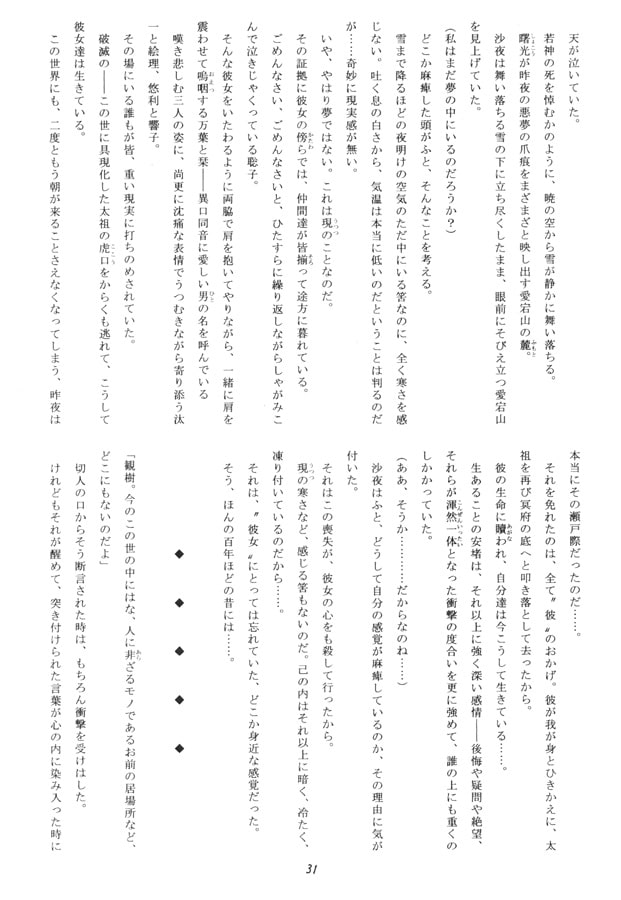 天が泣いていた。
若神の死を悼むかのように、暁の空から雪が静かに舞い落ちる。
曙光が昨夜の悪夢の爪痕をまざまざと映し出す愛宕山の麓。
沙夜は舞い落ちる雪の下に立ち尽くしたまま、眼前にそびえ立つ愛宕山
を見上げていた。
(私はまだ夢の中にいるのだろうか?)
どこか麻痺した頭がふと、そんなことを考える。
雪まで降るほどの夜明けの空気のただ中にいる筈なのに、全く寒さを感
じない。吐く息の白さから、気温は本当に低いのだということは判るのだ
が……奇妙に現実感が無い。
いや、やはり夢ではない。これは現のことなのだ。
その証拠に彼女の傍らでは、仲間達が皆揃って途方に暮れている。
ごめんなさい、ごめんなさいと、ひたすらに繰り返しながらしゃがみこ
んで泣きじゃくっている聡子。
そんな彼女をいたわるように両脇で肩を抱いてやりながら、一緒に肩を
震わせて嗚咽する万葉と栞――異口同音に愛しい男の名を呼んでいる
嘆き悲しむ三人の姿に、尚更に沈痛な表情でうつむきながら寄り添う汰
一と絵理、悠利と響子。
その場にいる誰もが皆、重い現実に打ちのめされていた。
破滅の――この世に具現化した太祖の虎口をからくも逃れて、こうして
彼女達は生きている。
この世界にも、二度ともう朝が来ることさえなくなってしまう、昨夜は
本当にその瀬戸際だったのだ……。
それを免れたのは、全て〝彼〟のおかげ。彼が我が身とひきかえに、太
祖を再び冥府の底へと叩き落として去ったから。
彼の生命に贖われ、自分達は今こうして生きている……。
生あることの安堵は、それ以上に強く深い感情――後悔や疑問や絶望、
それらが渾然一体となった衝撃の度合いを更に強めて、誰の上にも重くの
しかかっていた。
(ああ、そうか…………だからなのね……)
沙夜はふと、どうして自分の感覚が麻痺しているのか、その理由に気が
付いた。
それはこの喪失が、彼女の心をも殺して行ったから。
現の寒さなど、感じる筈もないのだ。己の内はそれ以上に暗く、冷たく、
凍り付いているのだから……。
それは、〝彼女〟にとっては忘れていた、どこか身近な感覚だった。
そう、ほんの百年ほどの昔には……。
◆ ◆ ◆ ◆ ◆
「観樹。今のこの世の中にはな、人に非ざるモノであるお前の居場所など、
どこにもないのだよ」
切人の口からそう断言された時は、もちろん衝撃を受けはした。
けれどもそれが醒めて、突き付けられた言葉が心の内に染み入った時に
31